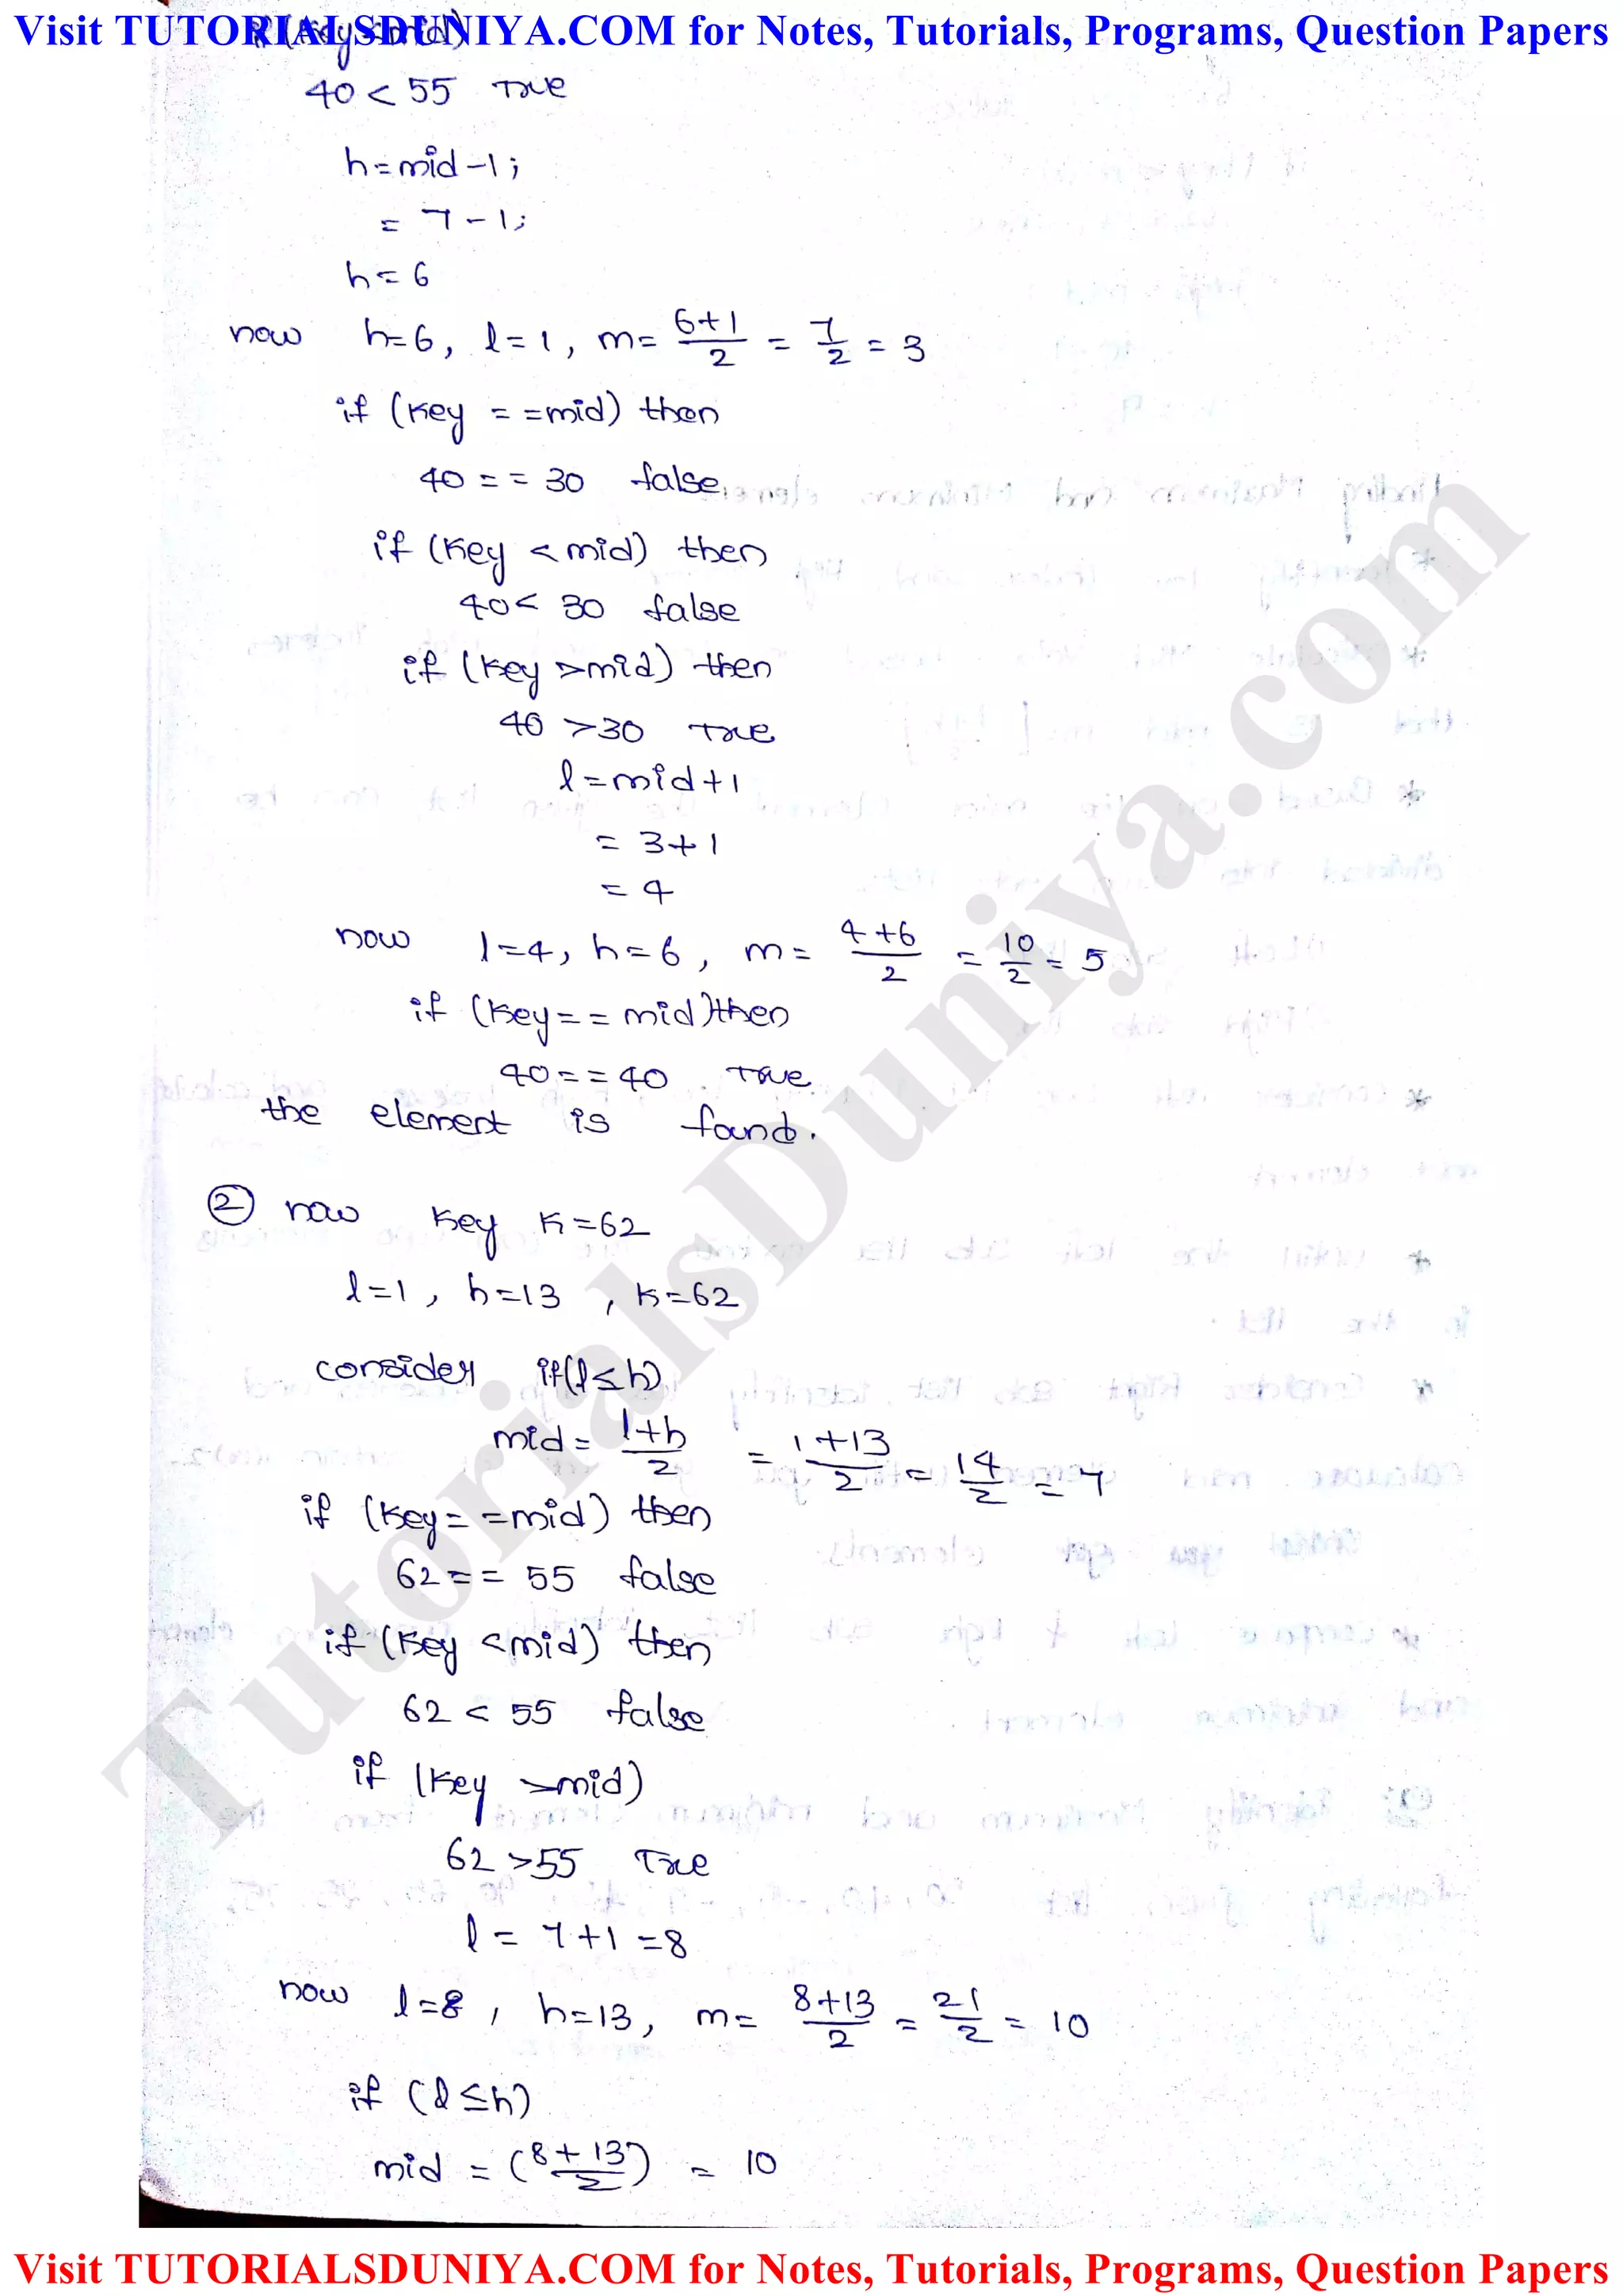 Visit TUTORIALSDUNIYA.COM for Notes, Tutorials, Programs, Question Papers
if (key < mid)
40 < 55 True
h = mid - 1;
= 7 - 1;
h = 6
now h=6, l=1, m= 6+1/2 = 7/2 = 3
if (key == mid) then
40 == 30 false
if (key < mid) then
40 < 30 false
if (key > mid) then
40 > 30 True
l = mid + 1
= 3 + 1
= 4
now l=4, h=6, m= 4+6/2 = 10/2 = 5
if (key == mid) then
40 == 40 True
the element is found.
② now key k=62
l=1, h=13, k=62
consider if(l≤h)
mid = l+h/2 = 1+13/2 = 14/2 = 7
if (key == mid) then
62 == 55 false
if (key < mid) then
62 < 55 false
if (key > mid)
62 > 55 True
l = 7+1 = 8
now l=8, h=13, m= 8+13/2 = 21/2 = 10
if (l ≤ h)
mid = (8+13/2) = 10
TutorialsDuniya.com
Visit TUTORIALSDUNIYA.COM for Notes, Tutorials, Programs, Question Papers